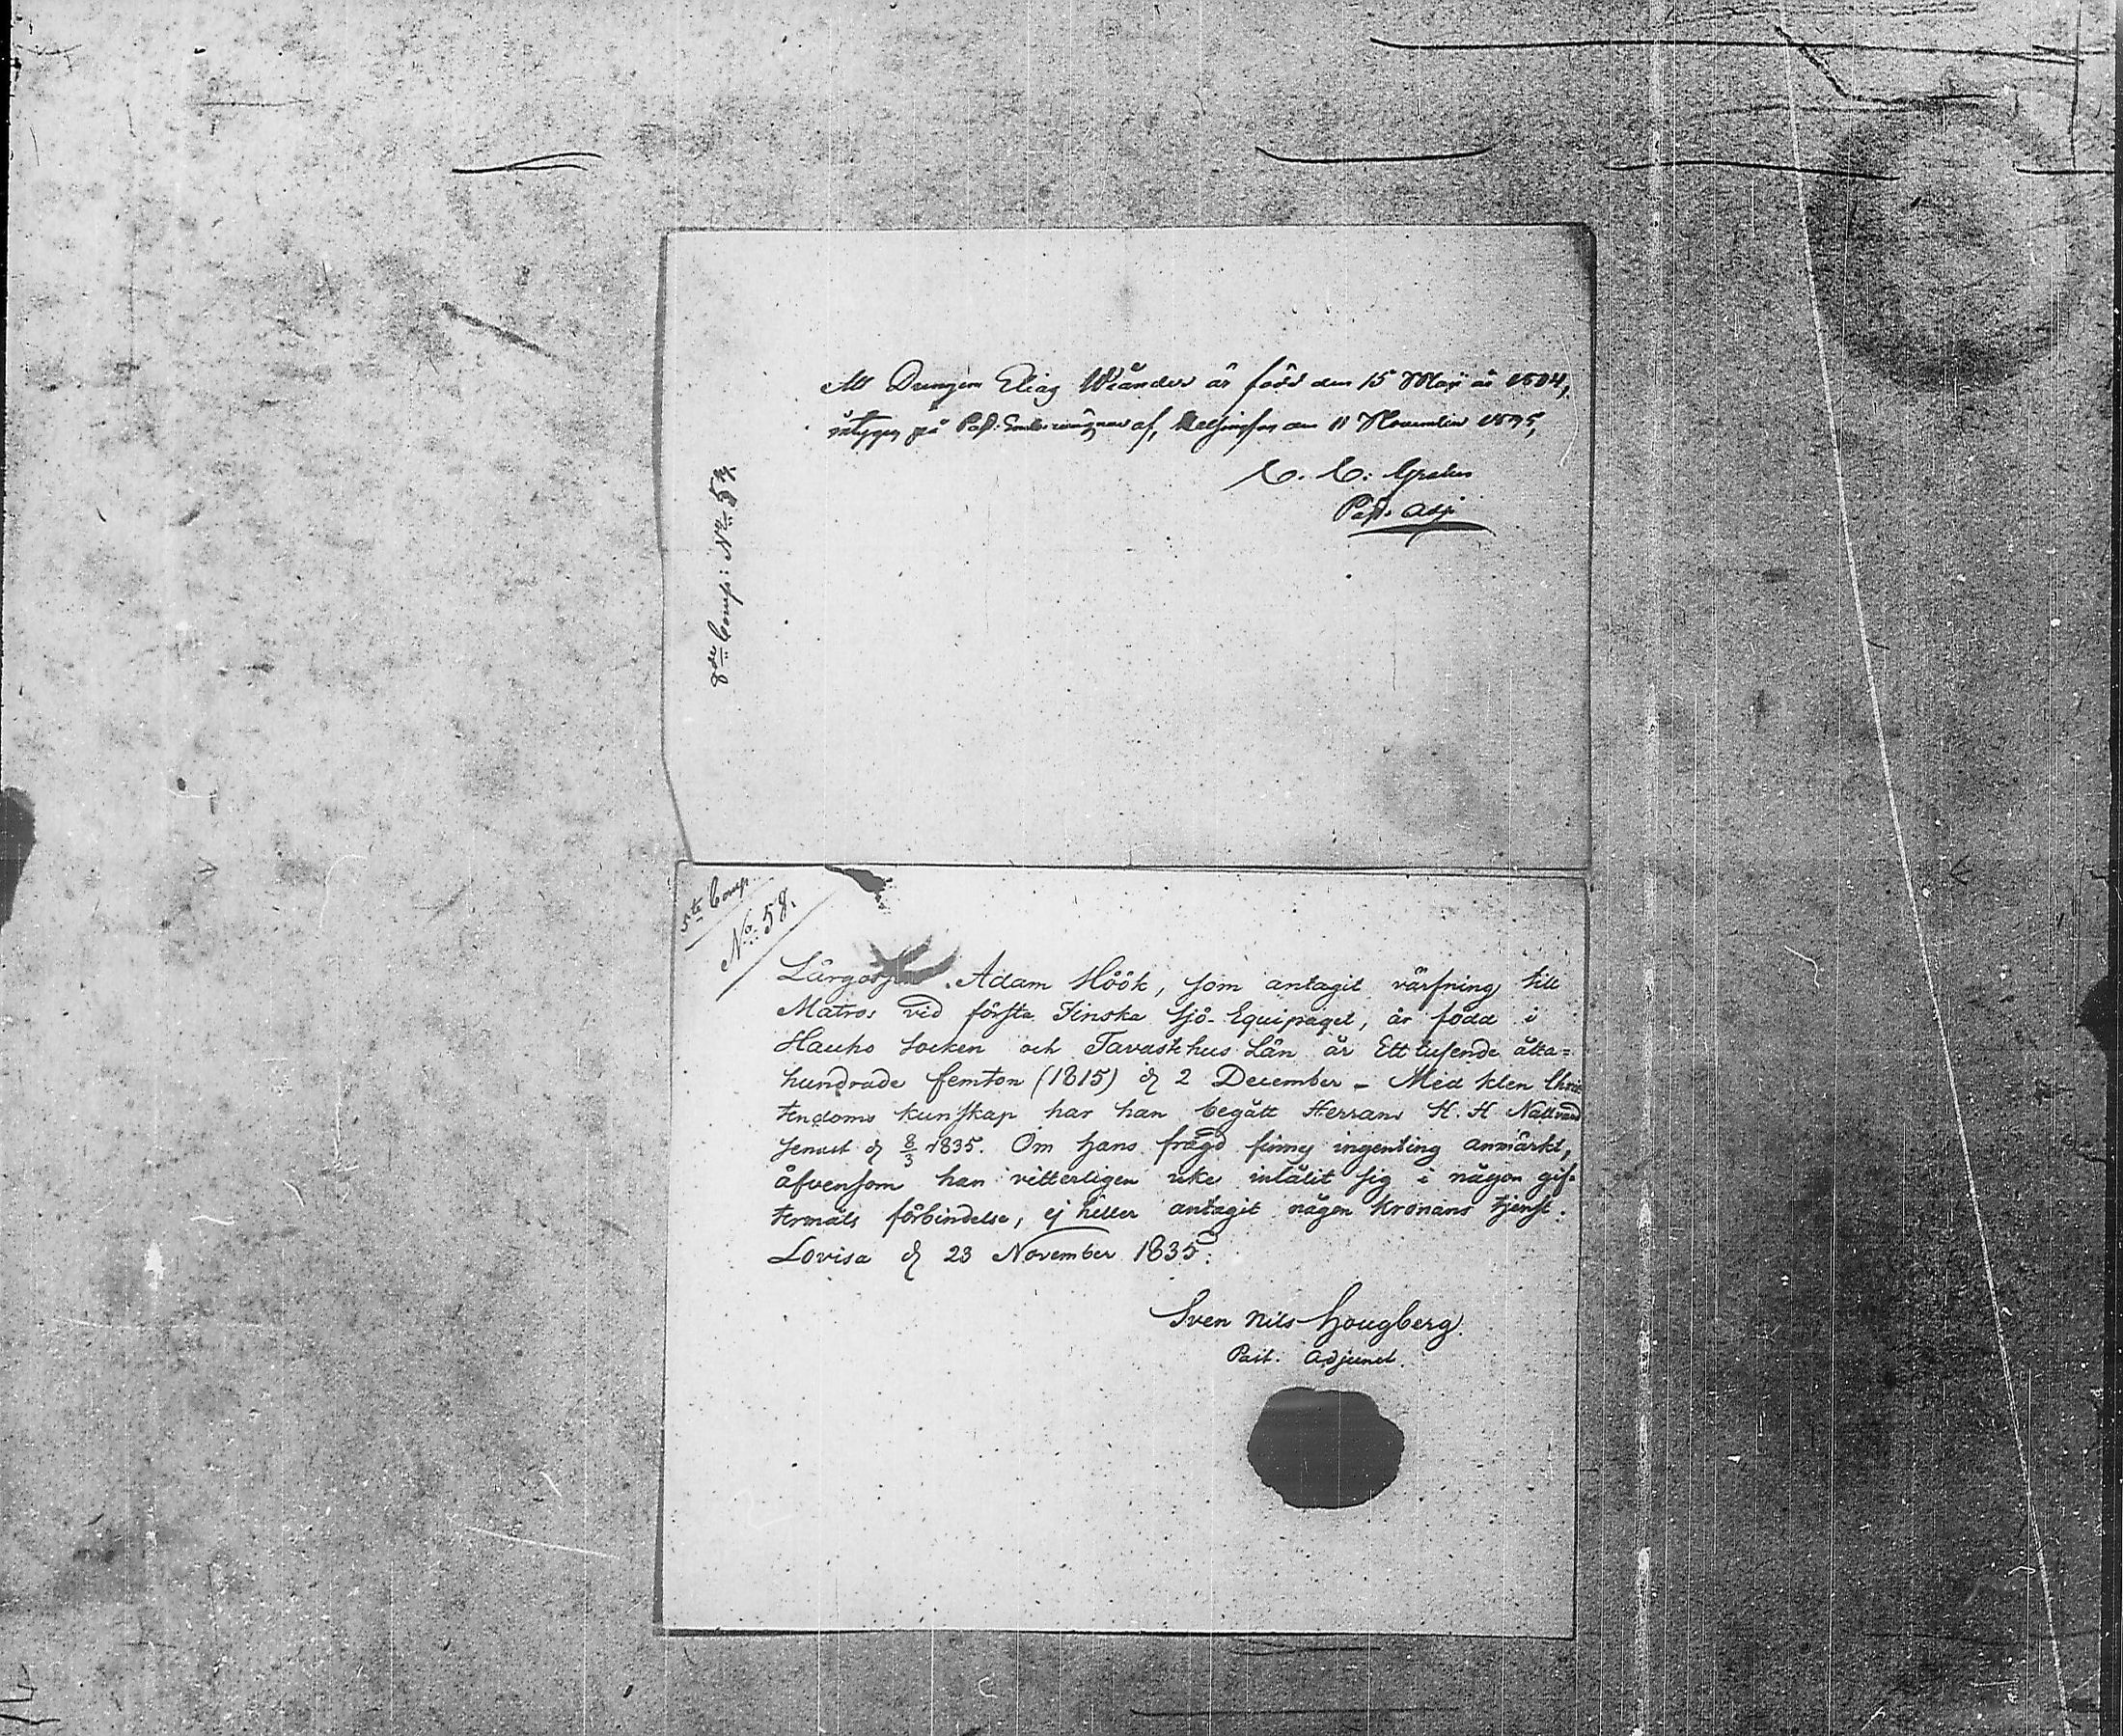 Att Drengen Elias Wiander är född den 15 Maji år 1804,
intygas på Past. Embetswägnar af, Helsingfors den 11 November 1835,
C. C.
Past. Adj.
8de Comp: No 54.
5te Comp.
No 58.
Lärgossen Adam Höök, som antagit värfning till
Matros vid första Finska Sjö-Equipaget, är född i
Hauho Socken och Tavastehus Län år Ett tusende åtta=
hundrade femton (1815) d. 2 December - Med klen Chris
tendoms kunskap har han begått Herrans H. H Nattvard
senast d. 8/3 1835. Om hans frägd finnes ingenting anmärkt,
äfvensom han vitterligen icke inlåtit sig i någon gif-
termåls förbindelse, ej heller antagit någon Kronans tjenst.
Lovisa d. 23 November 1835.
Sven Nils Hougberg.
Past. Adjunct.